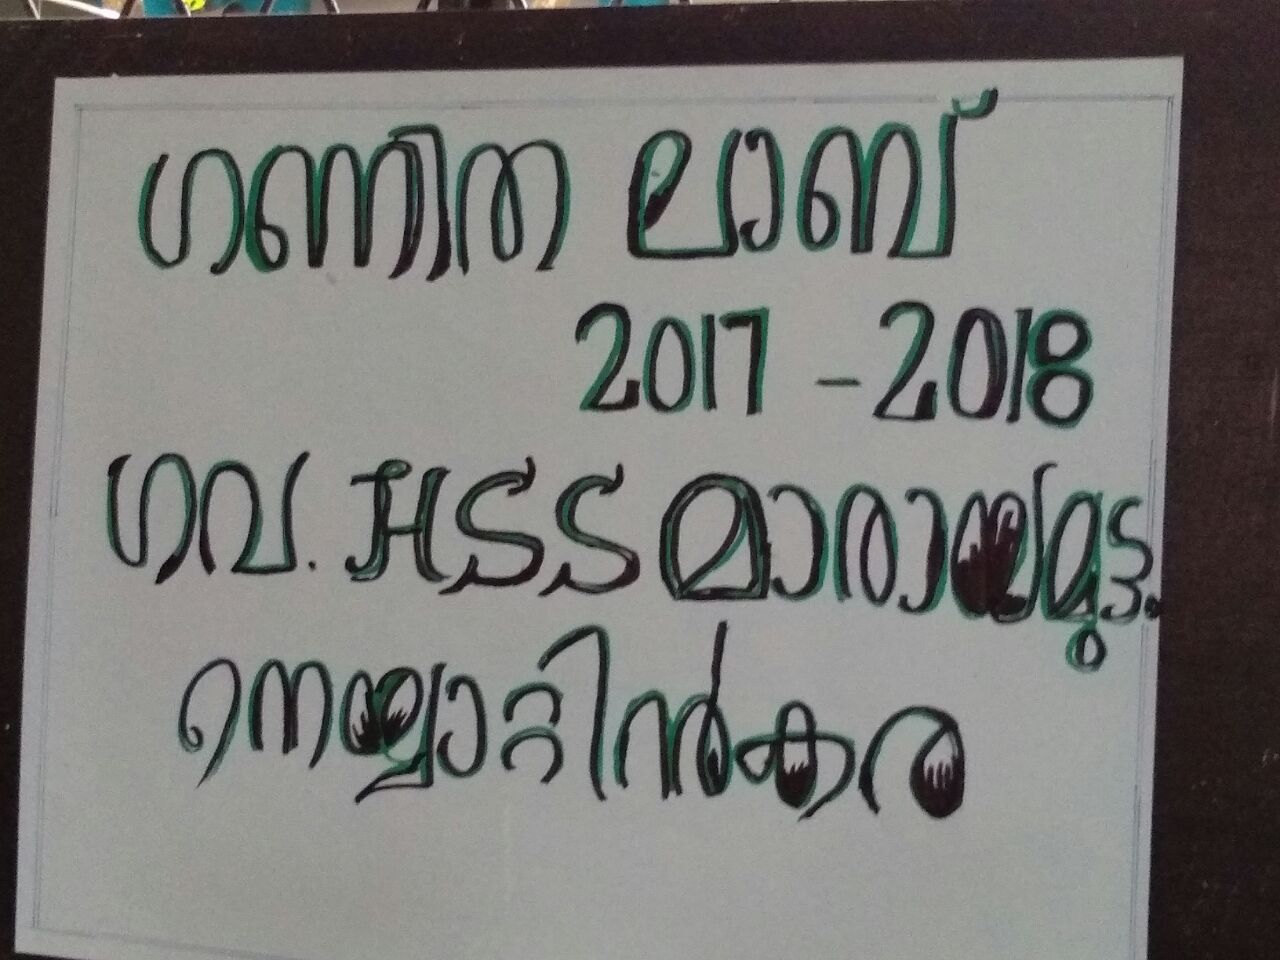 ഗണിത ലാബ്
2017 - 2018
ഗവ. HSS മാരായമുട്ടം
നെയ്യാറ്റിൻകര